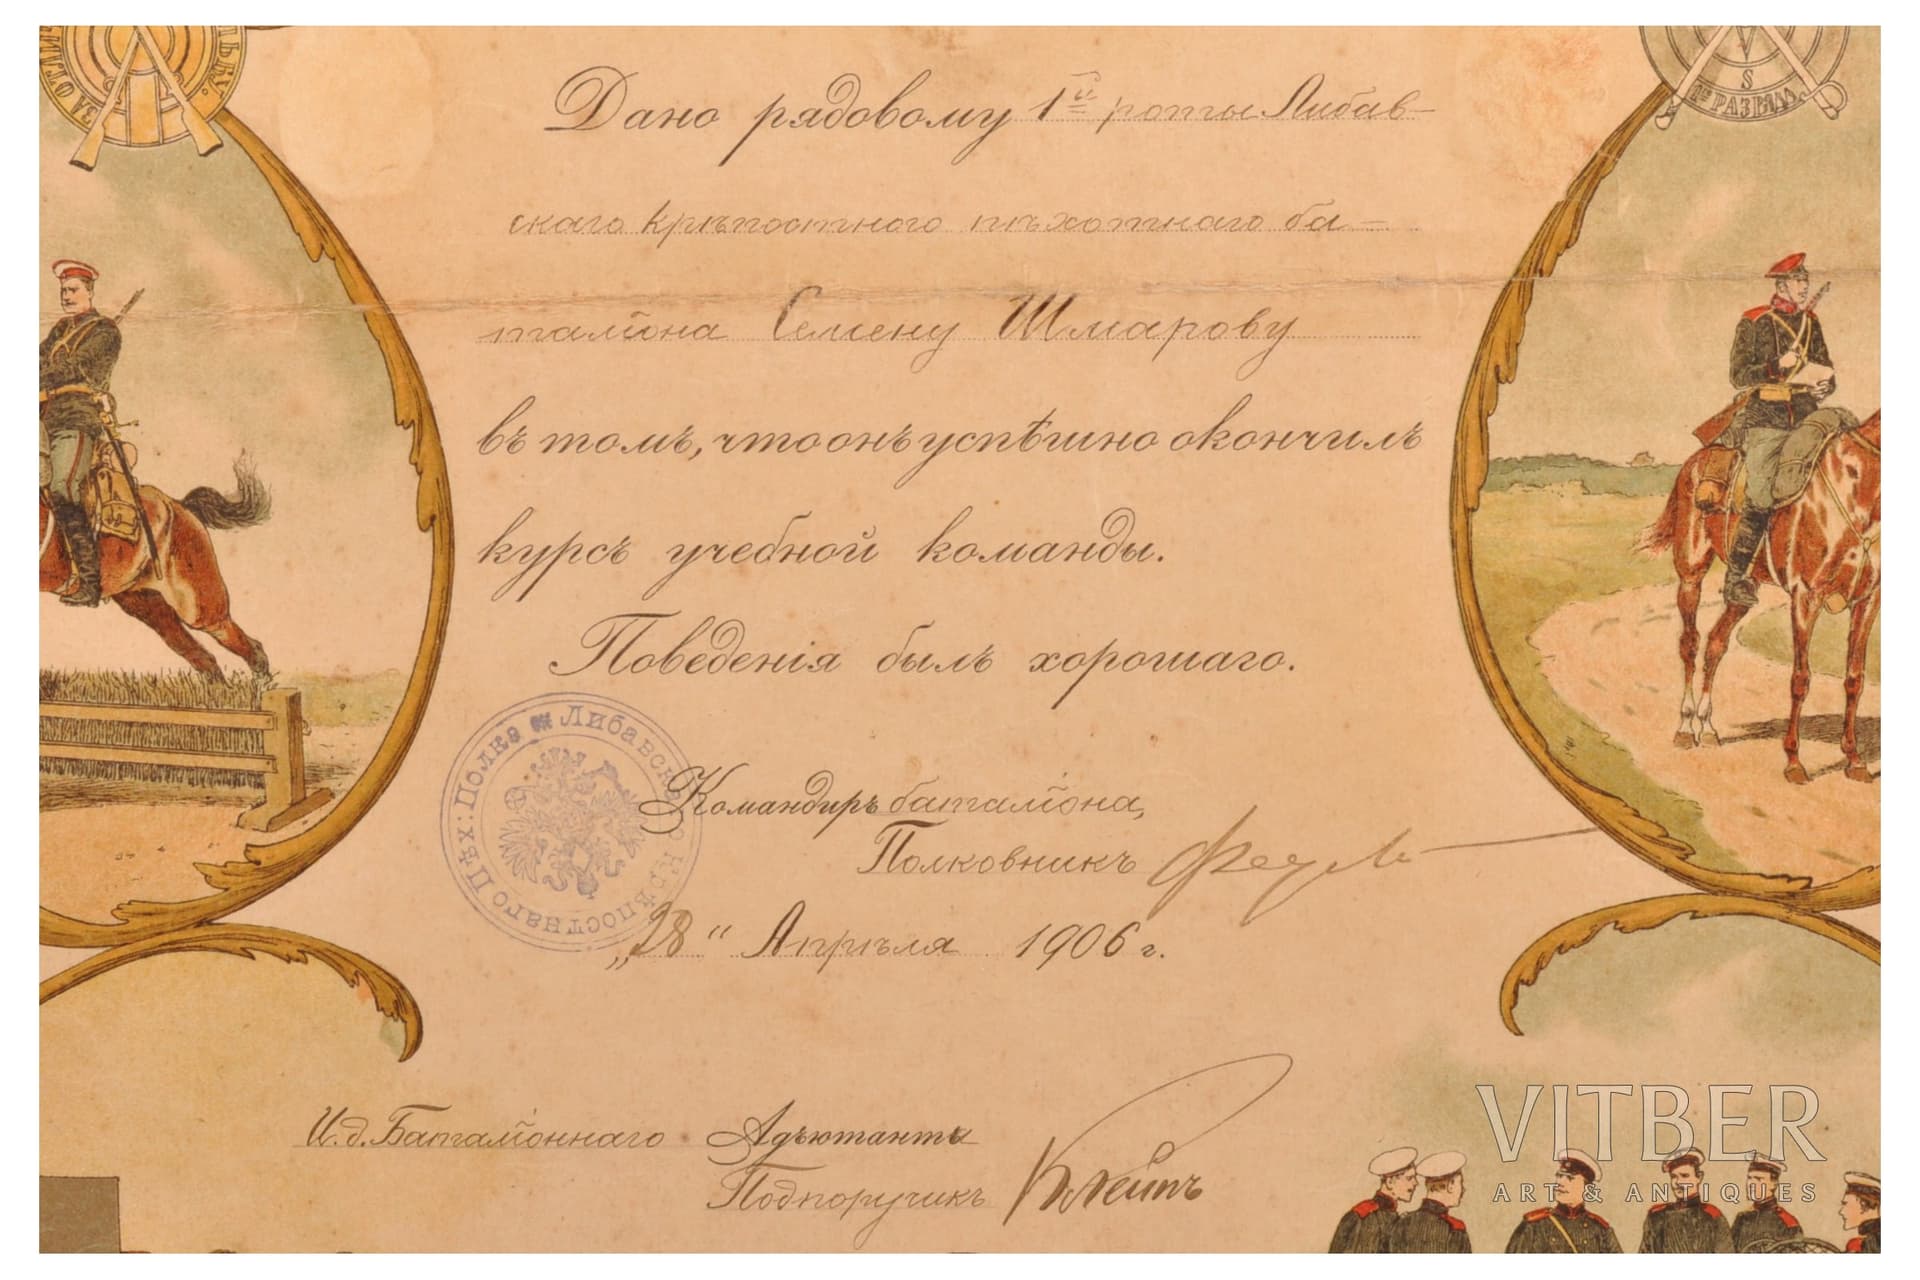 ЗА ОТЛИ
ЛЬБУ.
S
1го РАЗРЯДА
Дано рядовому 1й роты Либав-
скаго крѣпостного пѣхотнаго ба-
таліона Семену Шмарову
въ томъ, что онъ успѣшно окончилъ
курсъ учебной команды.
Поведенія былъ хорошаго.
Либавскаго Крѣпостнаго Пѣх: Полка
Командиръ баталіона,
Полковникъ
„28“ Апрѣля 1906 г.
И.д. Баталіоннаго Адъютанта
Подпоручикъ Клейнъ
VITBER
ART & ANTIQUES